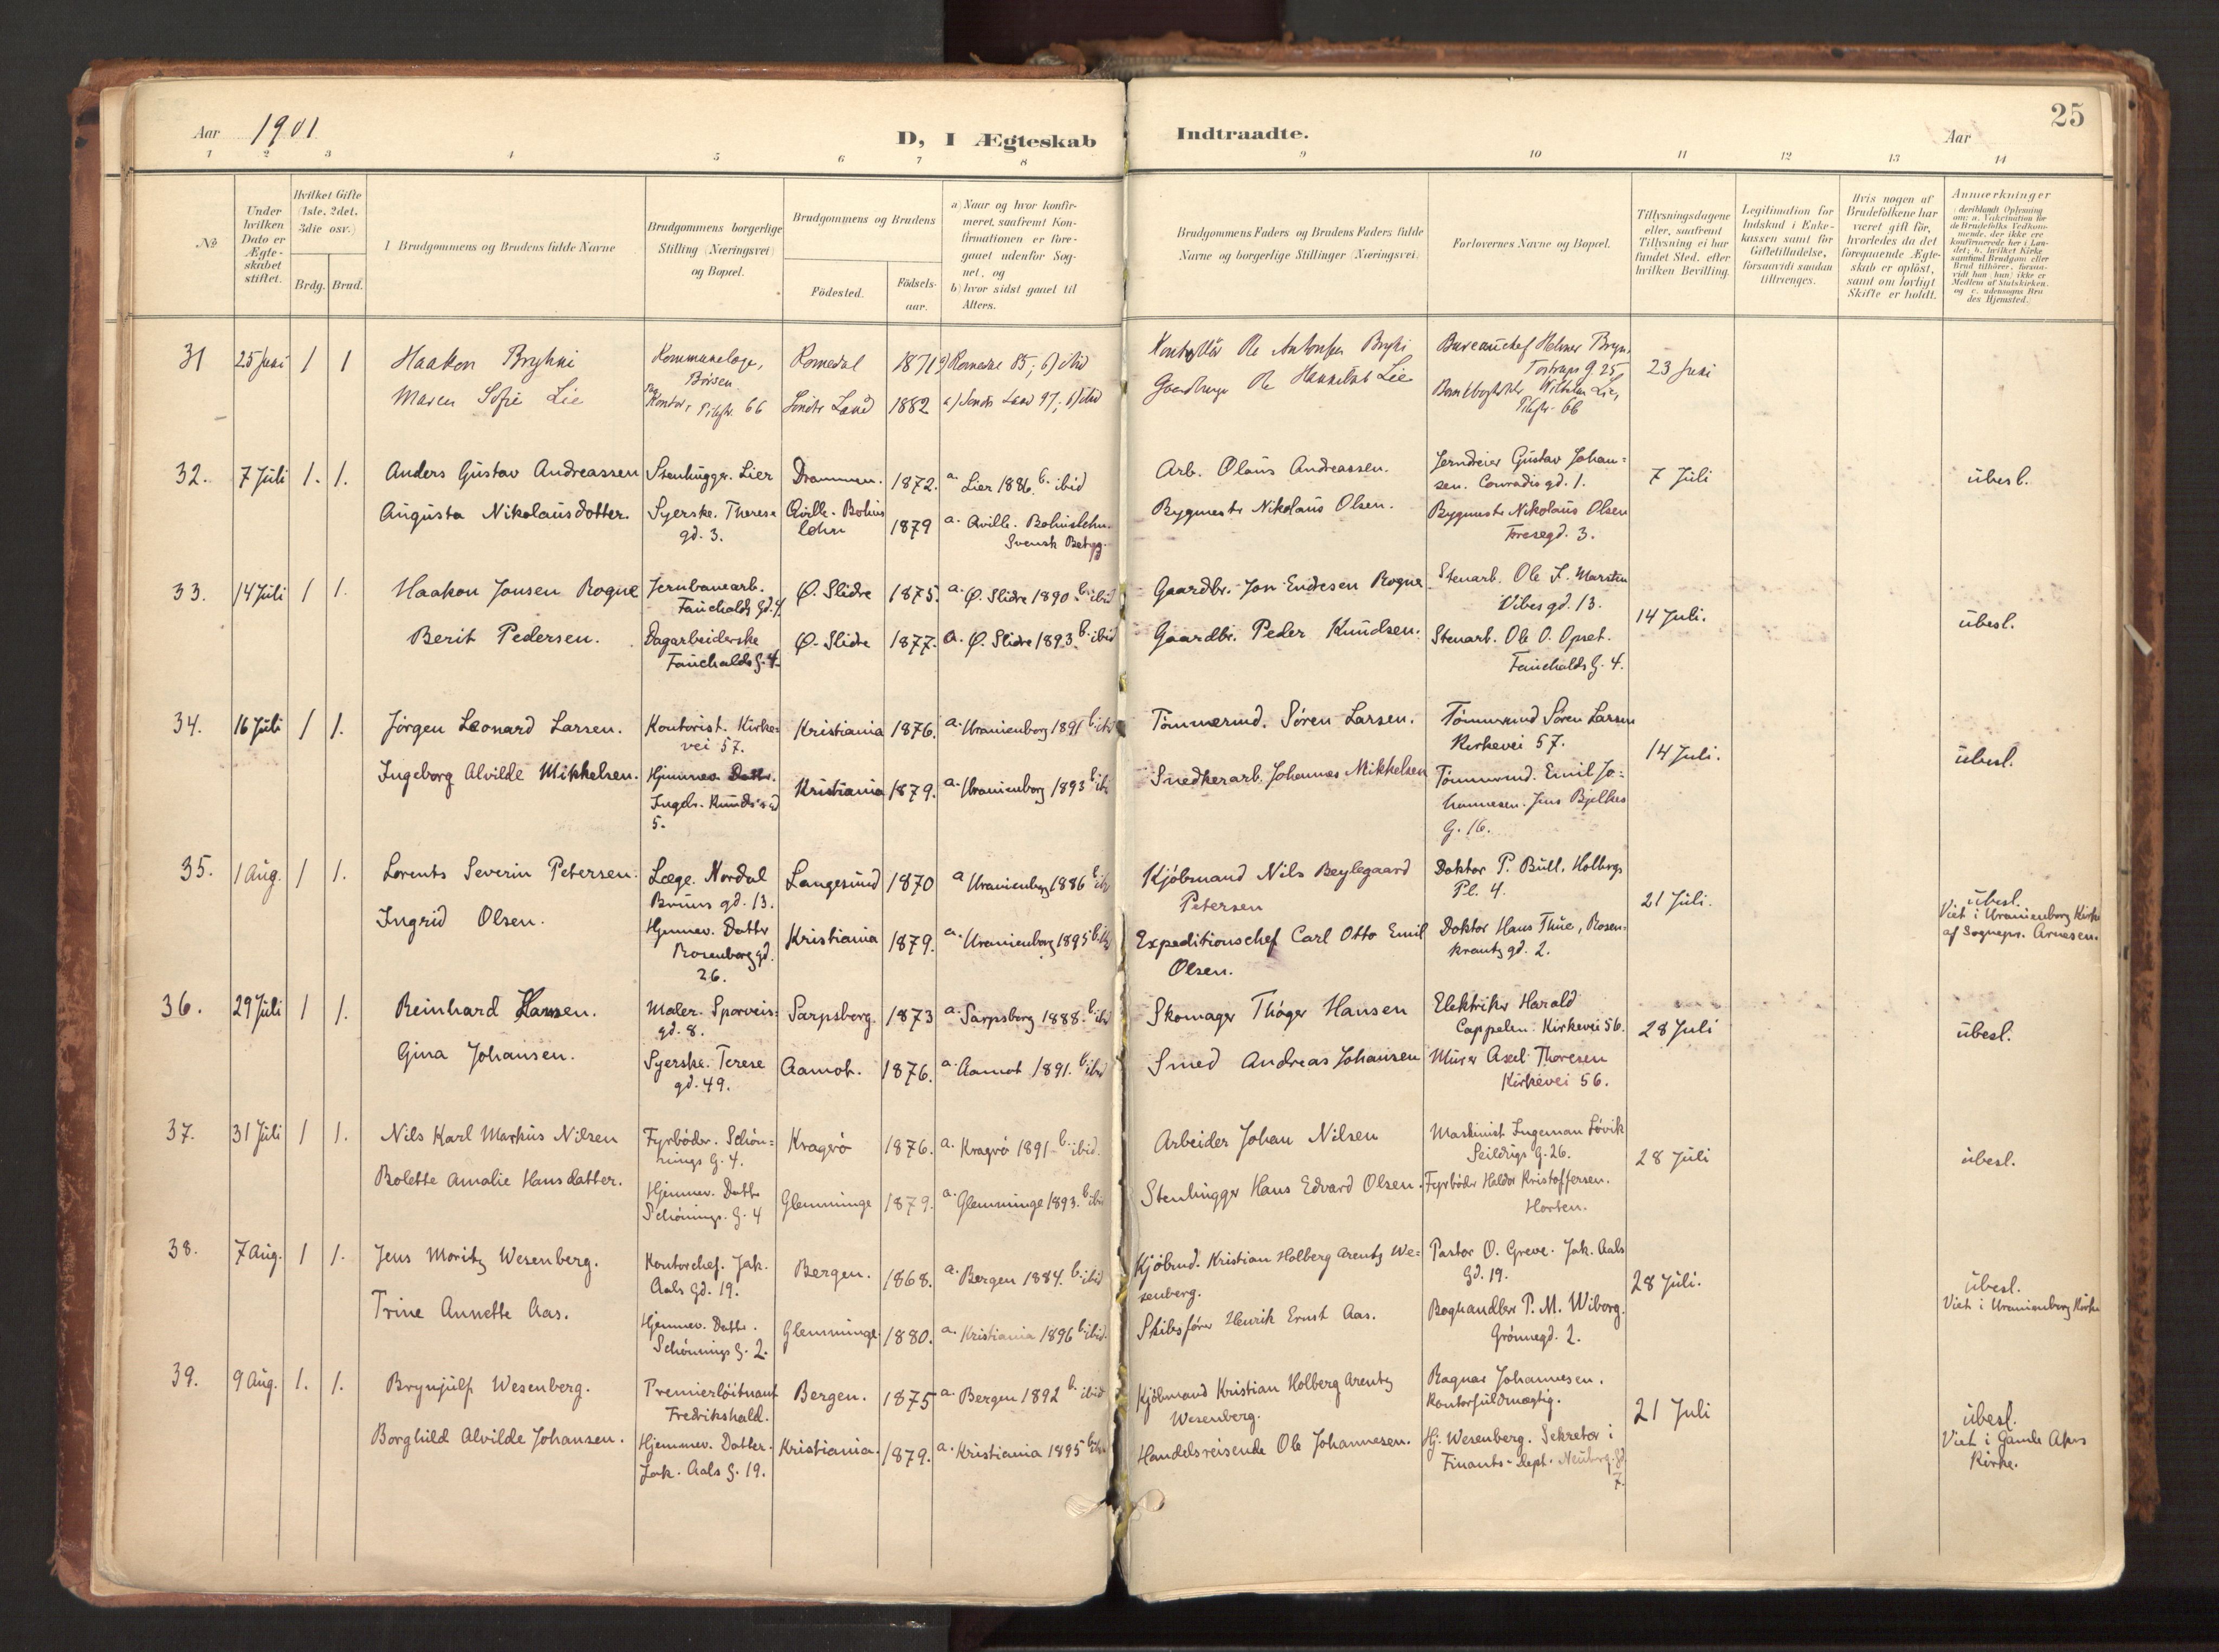 25
Aar 1901
D, I Ægteskab
Indtraadte.
Aar
1 2 3 4 5 6 7 8 9 10 11 12 13 14
№
Under hvilken Dato er Ægteskabet stiftet.
Hvilket Gifte (1ste, 2det, 3die osv.)
Brdg. Brud.
Brudgommens og Brudens fulde Navne
Brudgommens borgerlige Stilling (Næringsvei) og Bopæl.
Brudgommens og Brudens
Födested.
Födselsaar.
a) Naar og hvor konfirmeret, saafremt Konfirmationen er foregaaet udenfor Sognet, og
b) hvor sidst gaaet til Alters.
Brudgommens Faders og Brudens Faders fulde Navne og borgerlige Stillinger (Næringsvei)
Forlovernes Navne og Bopæl.
Tillysningsdagene eller, saafremt Tillysning ei har fundet Sted, efter hvilken Bevilling.
Legitimation for Indskud i Enkekassen samt for Giftetilladelse, forsaavidt saadan tiltrænges.
Hvis nogen af Brudefolkene har været gift för, hvorledes da det foregaaende Ægteskab er oplöst, samt om lovligt Skifte er holdt.
Anmærkninger
31 25 Juni 1 1 Haakon Brykni
Romedal 1871
23 Juni
Maren Sofie Lie
Pilestr. 66 Søndre Land 1882
Pilestr. 66
32. 7 Juli 1. 1. Anders Gustav Andreassen Stenhugger. Lier Drammen. 1872. a. Lier 1886. b. ibid Arb. Olaus Andreassen. Jerndreier Gustav Johansen. Conradis gd. 1. 7 Juli übesl.
Augusta Nikolausdotter. Syerske. Therese gd. 3. Qville. Bohuslehn 1879 a. Qville. Bohuslehn. Svensk Betyg. Bygmestr Nikolaus Olsen. Bygmestr Nikolaus Olsen Teresegd. 3.
33. 14 Juli 1 1. Haakon Jonsen Rogne Jernbanearb. Fauchalds gd. 4 Ø. Slidre 1875. a. Ø. Slidre 1890. b. ibid Gaardbr. Jon Endresen Rogne Stenarb. Ole J. Marsten Vibesgd. 13. 14 Juli. übesl.
Berit Pedersen. Dagarbeiderske Fauchalds G. 4. Ø. Slidre 1877. a. Ø. Slidre 1893. b. ibid Gaardbr. Peder Knudsen. Stenarb. Ole O. Opset. Fauchalds G. 4.
34. 16 Juli 1 1. Jörgen Leonard Larsen. Kontorist. Kirkevei 57. Kristiania 1876. a. Uranienborg 1891 b. ibid Tömmermd. Sören Larsen. Tömmermd Sören Larsen Kirkevei 57. 14 Juli. übesl.
Ingeborg Alvilde Mikkelsen. Hjemmev. Datter. 5. Kristiania 1879. a. Uranienborg 1893 b. ibid Snedkerarb. Johannes Mikkelsen Tömmermd. Emil Johannesen. Jens Bjelkes G. 16.
35. 1 Aug. 1 1. Lorents Severin Petersen. Læge. Nordal Bruns gd. 13. Langesund 1870 a Uranienborg 1886 b. ibid Kjöbmand Nils Beylegaard Petersen Doktor P. Bull. Holbergs Pl. 4. 21 Juli. übesl. Viet i Uranienborg Kirke af Sognepr. Arnesen.
Ingrid Olsen. Hjemmev. Datter Rosenborggd. 26. Kristiania 1879. a. Uranienborg 1895 b. ibid Expeditionschef Carl Otto Emil Olsen. Doktor Hans Thue, Rosenkrantzgd. 2.
36. 29 Juli 1 1. Reinhard Hansen. Maler. Sporveisgd. 8. Sarpsborg. 1873 a. Sarpsborg 1888. b. ibid Skomager Thöger Hansen Elektriker Harald Cappelen. Kirkevei 56. 28 Juli übesl.
Gina Johansen. Syerske. Terese gd. 49. Aamot. 1876. a. Aamot 1891. b. ibid Smed Andreas Johansen Murer Axel Thoresen Kirkevei 56.
37. 31 Juli 1 1. Nils Karl Markus Nilsen Fyrböder. Schönnings G. 4. Kragerö 1876. a. Kragerö 1891 b. ibid. Arbeider Johan Nilsen Maskinist Ingeman Lövik Seildugs G. 26. 28 Juli übesl.
Bolette Amalie Hansdatter. Hjemmev. Datter Schönnings. G. 4 Glemminge 1879. a. Glemminge 1893. b. ibid Stenhugger Hans Edvard Olsen. Fyrböder Haldor Kristoffersen. Horten.
38. 7 Aug. 1 1. Jens Moritz Wesenberg. Kontorchef. Jak. Aals gd. 19. Bergen. 1868. a. Bergen 1884. b. ibid Kjöbmd. Kristian Holberg Arentz Wesenberg. Pastor O. Greve. Jak. Aals Gd. 19. 28 Juli. übesl. Viet i Uranienborg Kirke
Trine Annette Aas. Hjemmev. Datter. Schönnings G. 2. Glemminge 1880. a. Kristiania 1896 b. ibid. Skibsförer Henrik Ernst Aas. Boghandler P. M. Wiborg. Grönnegd. 2.
39. 9 Aug. 1. 1. Brynjulf Wesenberg. Premierlöitnant Fredrikshald. Bergen. 1875 a. Bergen 1892 b. ibid Kjöbmand Kristian Holberg Arentz Wesenberg. Ragnar Johannesen. Kontorfuldmægtig. 21 Juli übesl. Viet i Gamle Akers Kirke.
Borghild Alvilde Johansen. Hjemmev. Datter. Jak. Aals G. 19. Kristiania. 1879. a. Kristiania 1895 b. ibid Handelsreisende Ole Johannesen. Hj. Wesenberg. Sekretær i Finants-Dept. Neuberg. Gd 7.